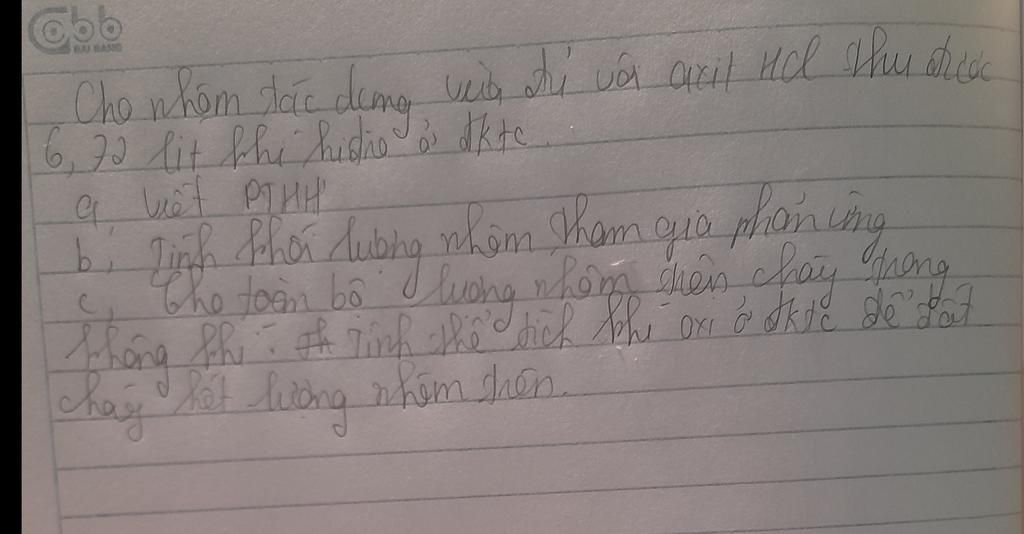 Cbb
ĐẠI BÀNG
Cho nhôm tác dụng vừa đủ với axit HCl thu được
6,72 lít khí hiđro ở đktc.
a, Viết PTHH
b, Tính khối lượng nhôm tham gia phản ứng
c, Cho toàn bộ lượng nhôm trên cháy trong
không khí. Tính thể tích khí oxi ở đktc để đốt
cháy hết lượng nhôm trên.